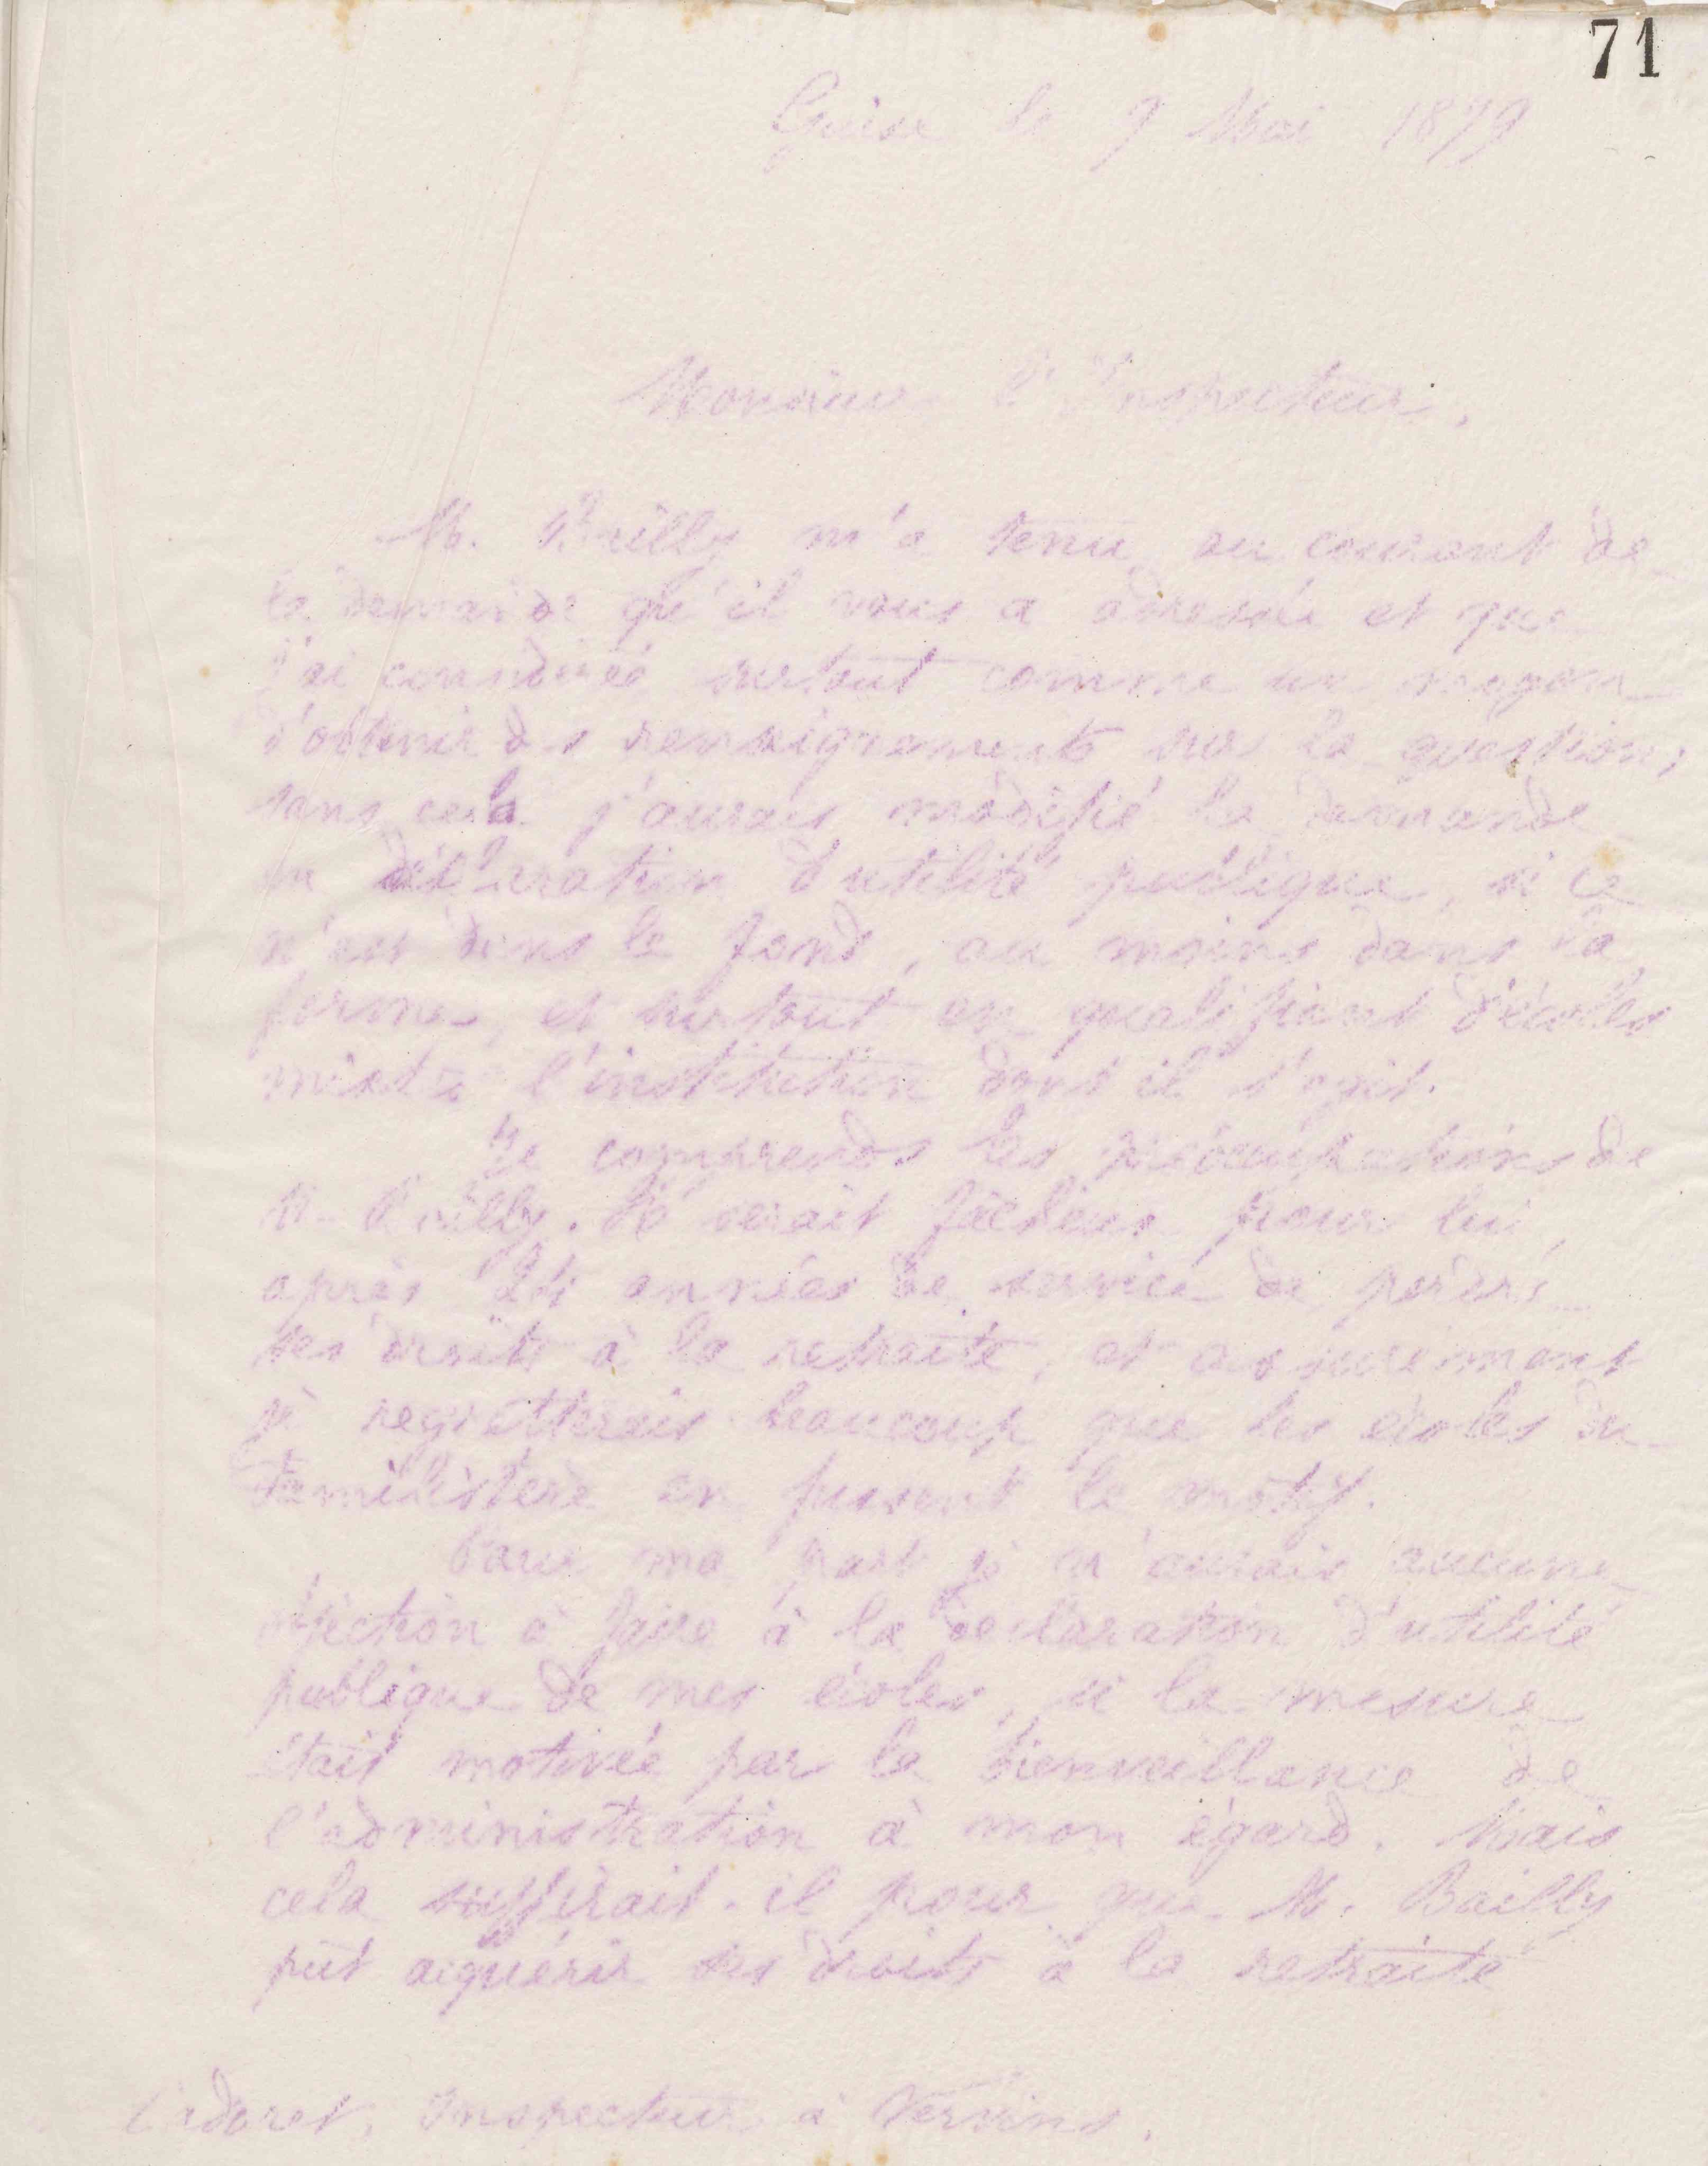 71
Guise le 9 Mai 1879
Monsieur l'Inspecteur,
M. Bailly m'a tenu au courant de
la demande qu'il vous a adressée et que
j'ai considéré surtout comme un moyen
d'obtenir des renseignements sur la question;
sans cela j'aurais modifié la demande
en déclaration d'utilité publique, si ce
n'est dans le fond, au moins dans la
forme, et surtout en qualifiant d'écoles
mixtes l'institution dont il s'agit.
Je comprends les préoccupations de
M. Bailly. Il serait fâcheux pour lui,
après années de service de perdre
ses droits à la retraite, et assurément
je regretterais beaucoup que les écoles du
familistère en fussent le motif.
Pour ma part je n'aurais aucune
objection à faire à la déclaration d'utilité
publique de mes écoles, si la mesure
était motivée par la bienveillance de
l'administration à mon égard. Mais
cela suffirait-il pour que M. Bailly
put acquérir ses droits à la retraite
Cadoret, Inspecteur à Vervins.